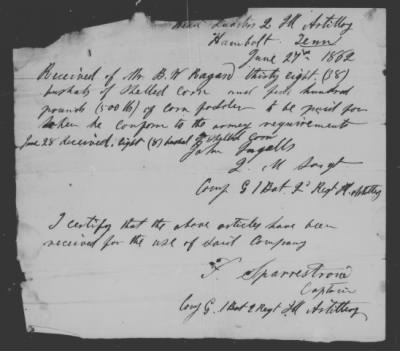 Head Quarters 2 Ill Artillery
Humbolt Tenn
June 27th 1862
Received of Mr B. W. Ragard thirty eight (38)
bushels of shelled corn and five hundred
pounds (500 lb) of corn fodder to be paid for
when he conform to the army requirements
June 28 received eight (8) bushel of shelled corn
John Ingalls
Q. M Sargt
Comp G 1 Bat 2d Regt Ill Artillery
I certify that the above articles have been
received for the use of said Company
F. Sparrestrom
Captain
Comp G. 1 Bat 2 Regt Ill Artillery